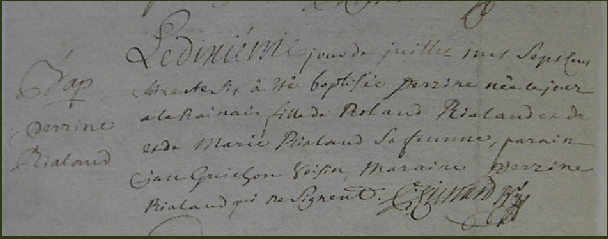 Bap
perrine
Rialand
Le dixiéme jour de juillet mil Sept Cens
soixante six à été baptisée perrine née le jour
a la fille de Roland Rialand et de
et de Marie Rialand Sa femme, parain
jan Guichon Voisin, Maraine Perrine
Rialand qui ne Signent.